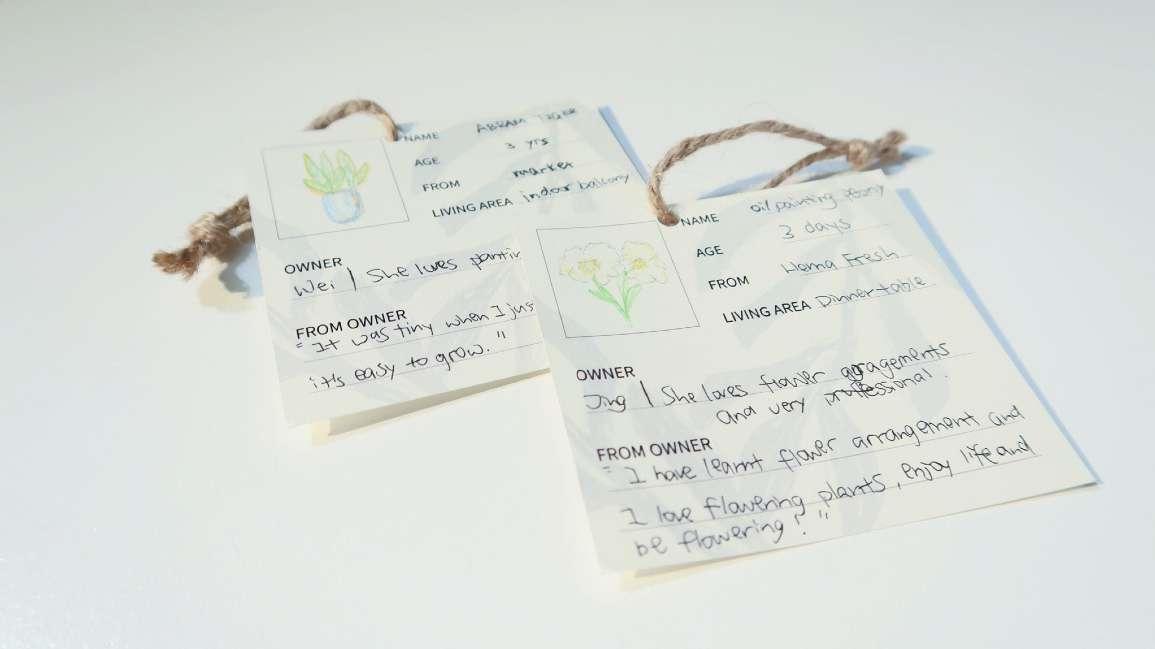 NAME
AGE 3 yrs
FROM market
LIVING AREA indoor balcony
OWNER
Wei | She loves
FROM OWNER
"It was tiny when I jus
it's easy to grow."
NAME oil painting Peony
AGE 3 days
FROM Hema Fresh
LIVING AREA Dinner table
OWNER
Jing | She loves flower agragements
and very professional.
FROM OWNER
"I have learnt flower arrangement and
I love flowering plants, enjoy life and
be flowering!"